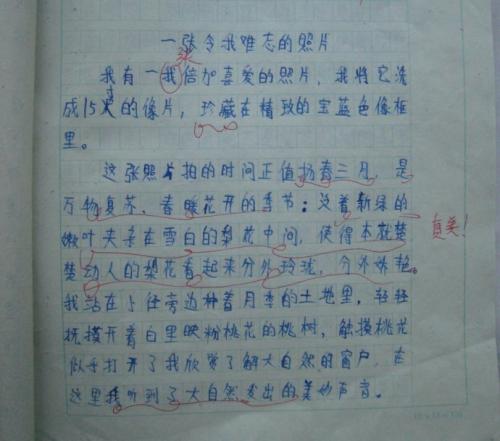 一张令我难忘的照片
我有一我倍加喜爱的照片，我将它洗
张
成15寸的像片，珍藏在精致的宝蓝色像框
里。
这张照片拍的时间正值扬春三月，是
万物复苏、春暖花开的季节：泛着新绿的
嫩叶夹杂在雪白的梨花中间，使得本就楚
楚动人的梨花看起来分外玲珑，分外妖艳。
真美！
我站在与任旁边种着月季的土地里，轻轻
抚摸开着白里映粉桃花的桃树，触摸桃花
似乎打开了我欣赏了解大自然的窗户，在
这里我听到了大自然发出的美妙声音。